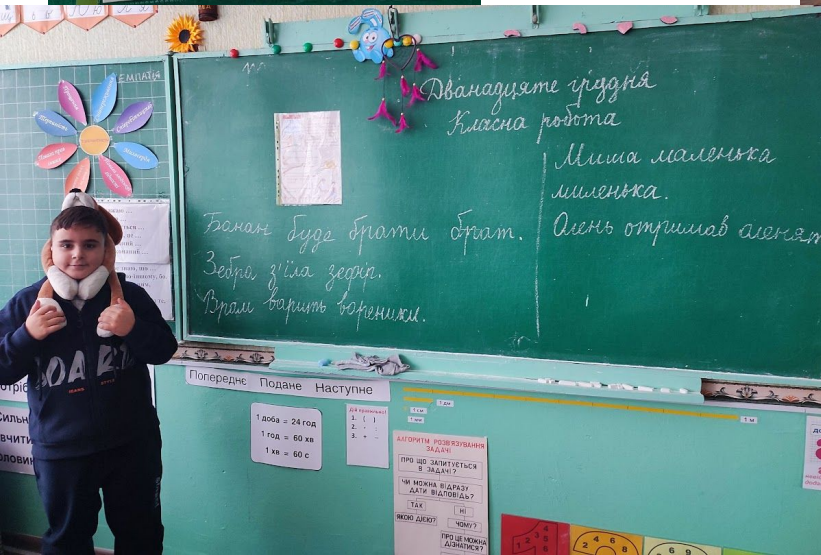 ЕМПАТІЯ
Дванадцяте грудня
Класна робота
Миша маленька
миленька.
Олень отримав оленят
Банан буде брати брат.
Зебра з'їла зефір.
Врам варить вареники.
Попереднє Подане Наступне
1 доба = 24 год
1 год = 60 хв
1 хв = 60 с
1. ( )
2. ·
3. +
1 дм
1 см
1 мм
1 м
АЛГОРИТМ РОЗВ'ЯЗУВАННЯ
ЗАДАЧІ
ПРО ЩО ЗАПИТУЄТЬСЯ
В ЗАДАЧІ?
ЧИ МОЖНА ВІДРАЗУ
ДАТИ ВІДПОВІДЬ?
ТАК НІ
ЯКОЮ ДІЄЮ? ЧОМУ?
ПРО ЦЕ МОЖНА
ДІЗНАТИСЯ?
1 2 3 4 5 6
2 4 6 8
6 9